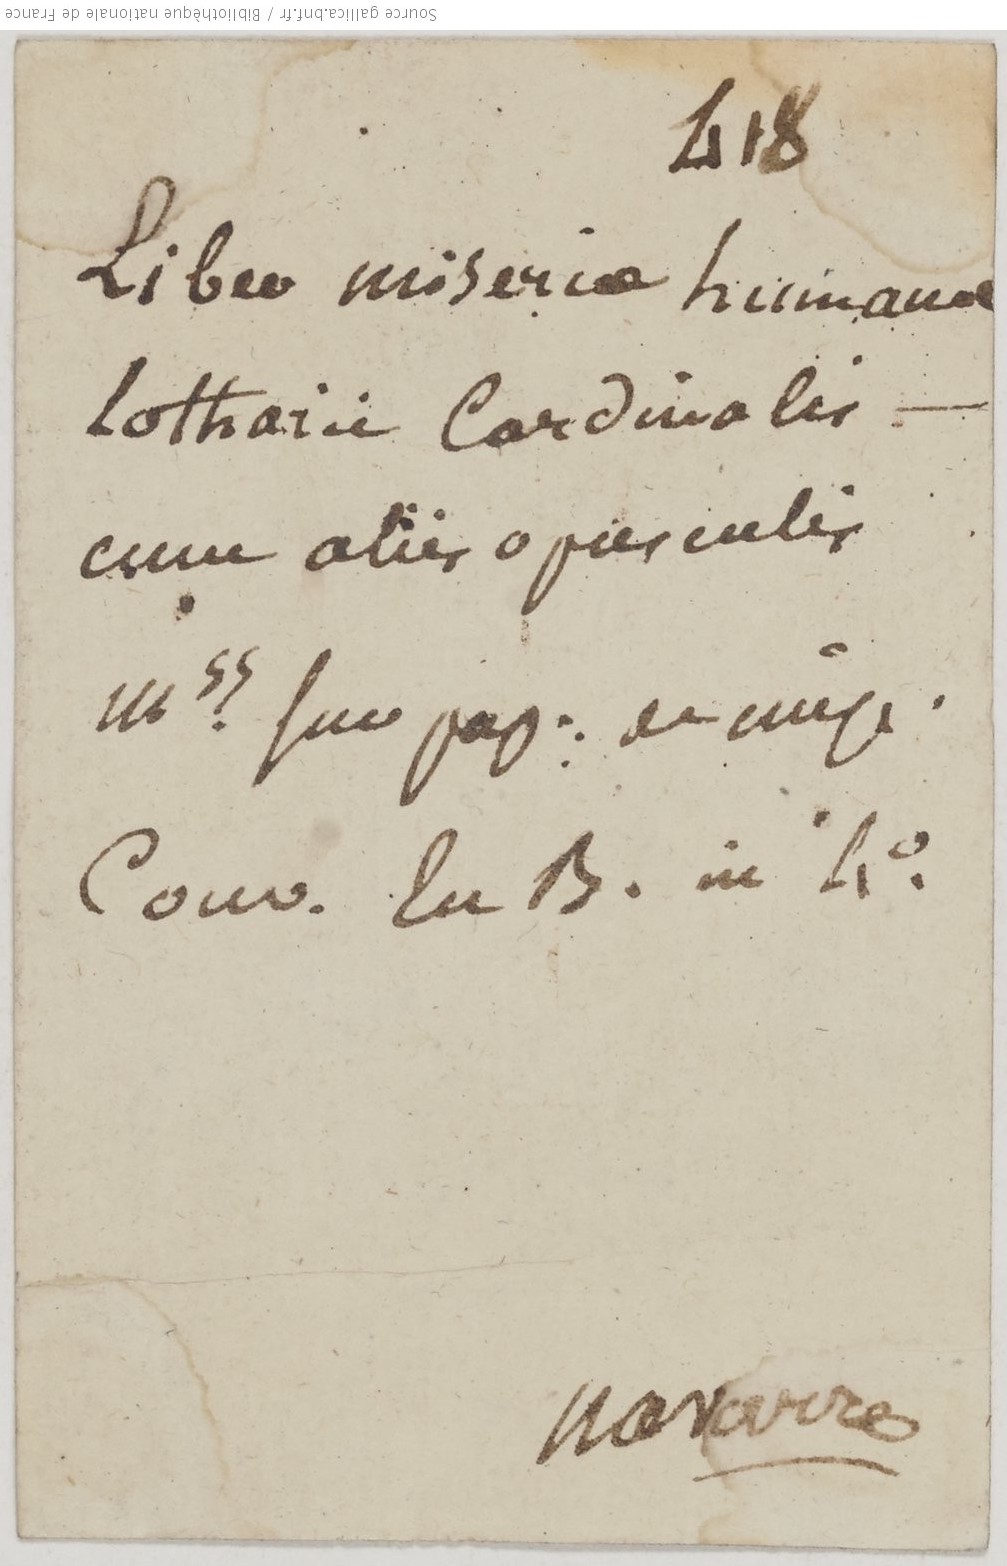 Source gallica.bnf.fr / Bibliothèque nationale de France
418
Liber miseriæ humanæ
Lotharii Cardinalis —
cum aliis opusculis
mss. sur pap: de
Couv. En B. in 4º.
navarre